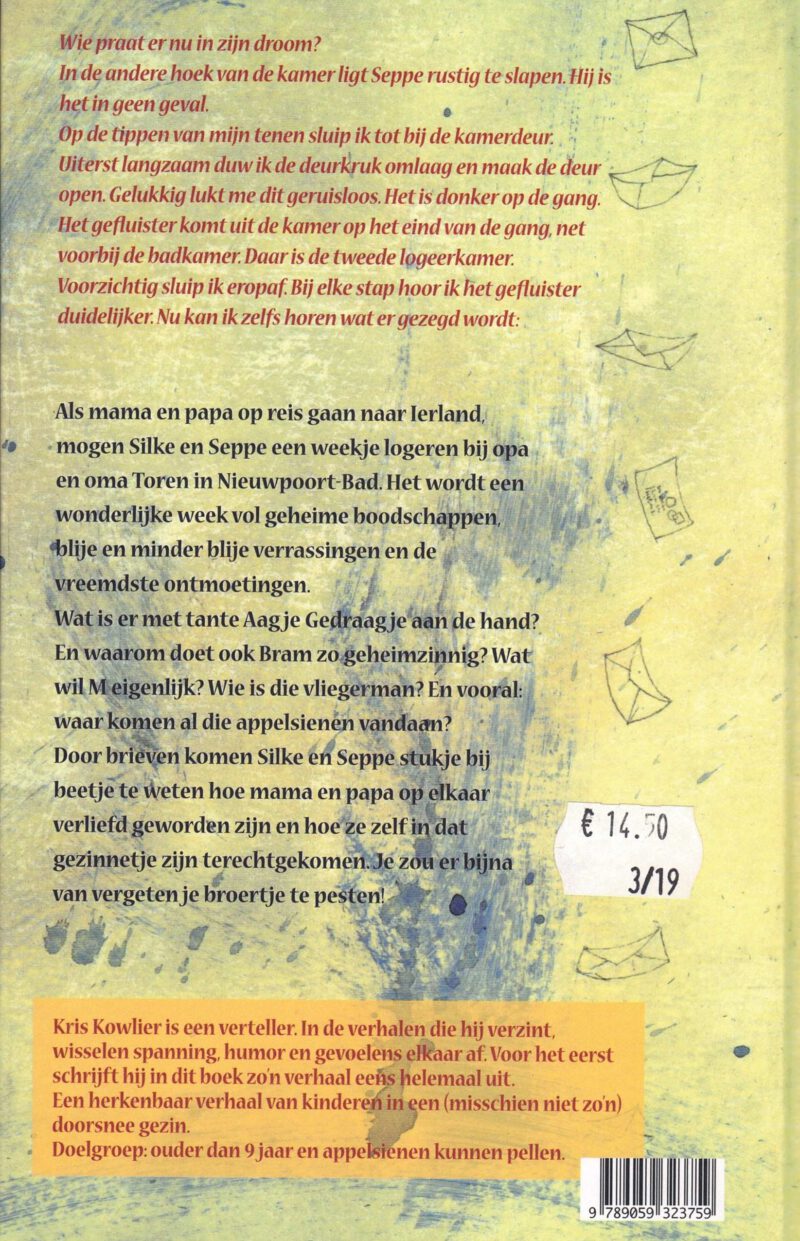 Wie praat er nu in zijn droom?
In de andere hoek van de kamer ligt Seppe rustig te slapen. Hij is
het in geen geval.
Op de tippen van mijn tenen sluip ik tot bij de kamerdeur.
Uiterst langzaam duw ik de deurkruk omlaag en maak de deur
open. Gelukkig lukt me dit geruisloos. Het is donker op de gang.
Het gefluister komt uit de kamer op het eind van de gang, net
voorbij de badkamer. Daar is de tweede logeerkamer.
Voorzichtig sluip ik eropaf. Bij elke stap hoor ik het gefluister
duidelijker. Nu kan ik zelfs horen wat er gezegd wordt:
Als mama en papa op reis gaan naar Ierland,
mogen Silke en Seppe een weekje logeren bij opa
en oma Toren in Nieuwpoort-Bad. Het wordt een
wonderlijke week vol geheime boodschappen,
blije en minder blije verrassingen en de
vreemdste ontmoetingen.
Wat is er met tante Aagje Gedraagje aan de hand?
En waarom doet ook Bram zo geheimzinnig? Wat
wil M eigenlijk? Wie is die vliegerman? En vooral:
waar komen al die appelsienen vandaan?
Door brieven komen Silke en Seppe stukje bij
beetje te weten hoe mama en papa op elkaar
verliefd geworden zijn en hoe ze zelf in dat
gezinnetje zijn terechtgekomen. Je zou er bijna
van vergeten je broertje te pesten!
€ 14.50
3/19
Kris Kowlier is een verteller. In de verhalen die hij verzint,
wisselen spanning, humor en gevoelens elkaar af. Voor het eerst
schrijft hij in dit boek zo'n verhaal eens helemaal uit.
Een herkenbaar verhaal van kinderen in een (misschien niet zo'n)
doorsnee gezin.
Doelgroep: ouder dan 9 jaar en appelsienen kunnen pellen.
9 789059 323759